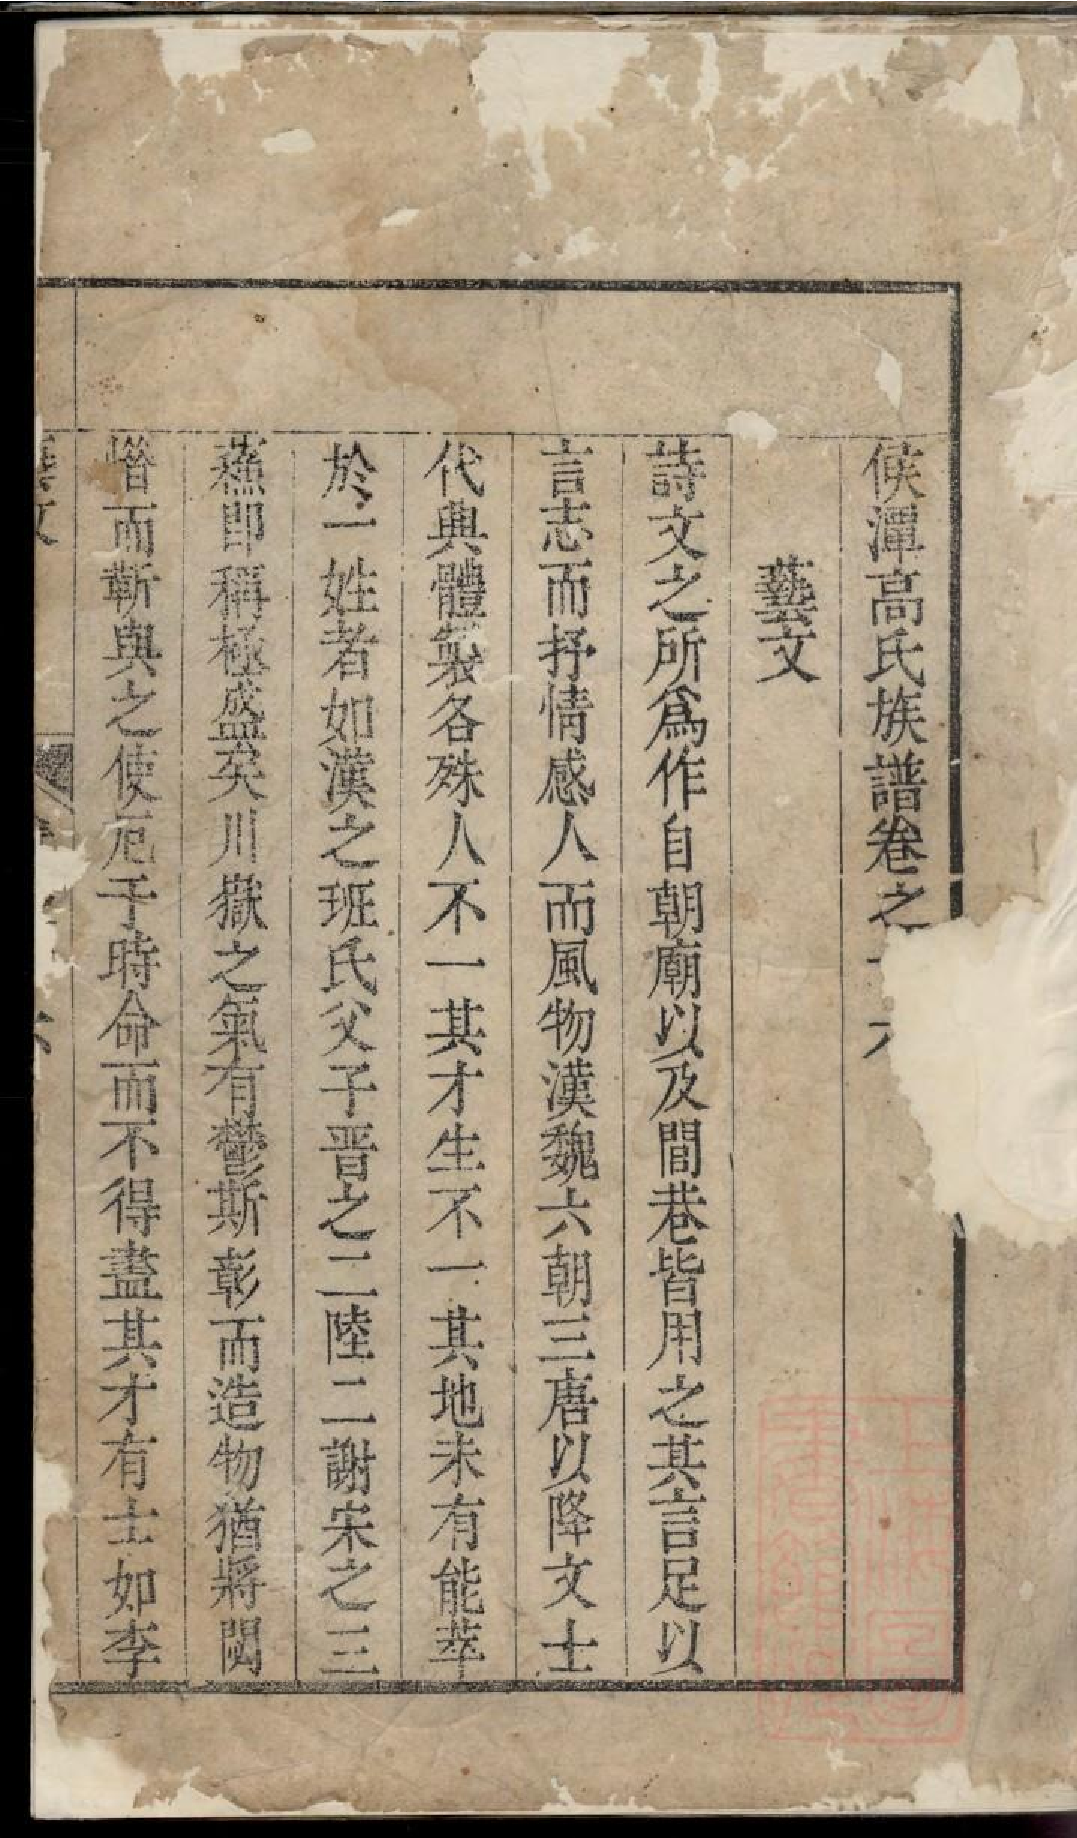 候潭高氏族譜卷之
藝文
詩文之所爲作自朝廟以及閭巷皆用之其言足以
言志而抒情感人而風物漢魏六朝三唐以降文士
代興體製各殊人不一其才生不一其地未有能萃
於一姓者如漢之班氏父子晋之二陸二謝宋之三
蘓即稱極盛矣川嶽之氣有鬱斯彰而造物猶將閟
惜而靳與之使厄于時命而不得盡其才有士如李
藝文